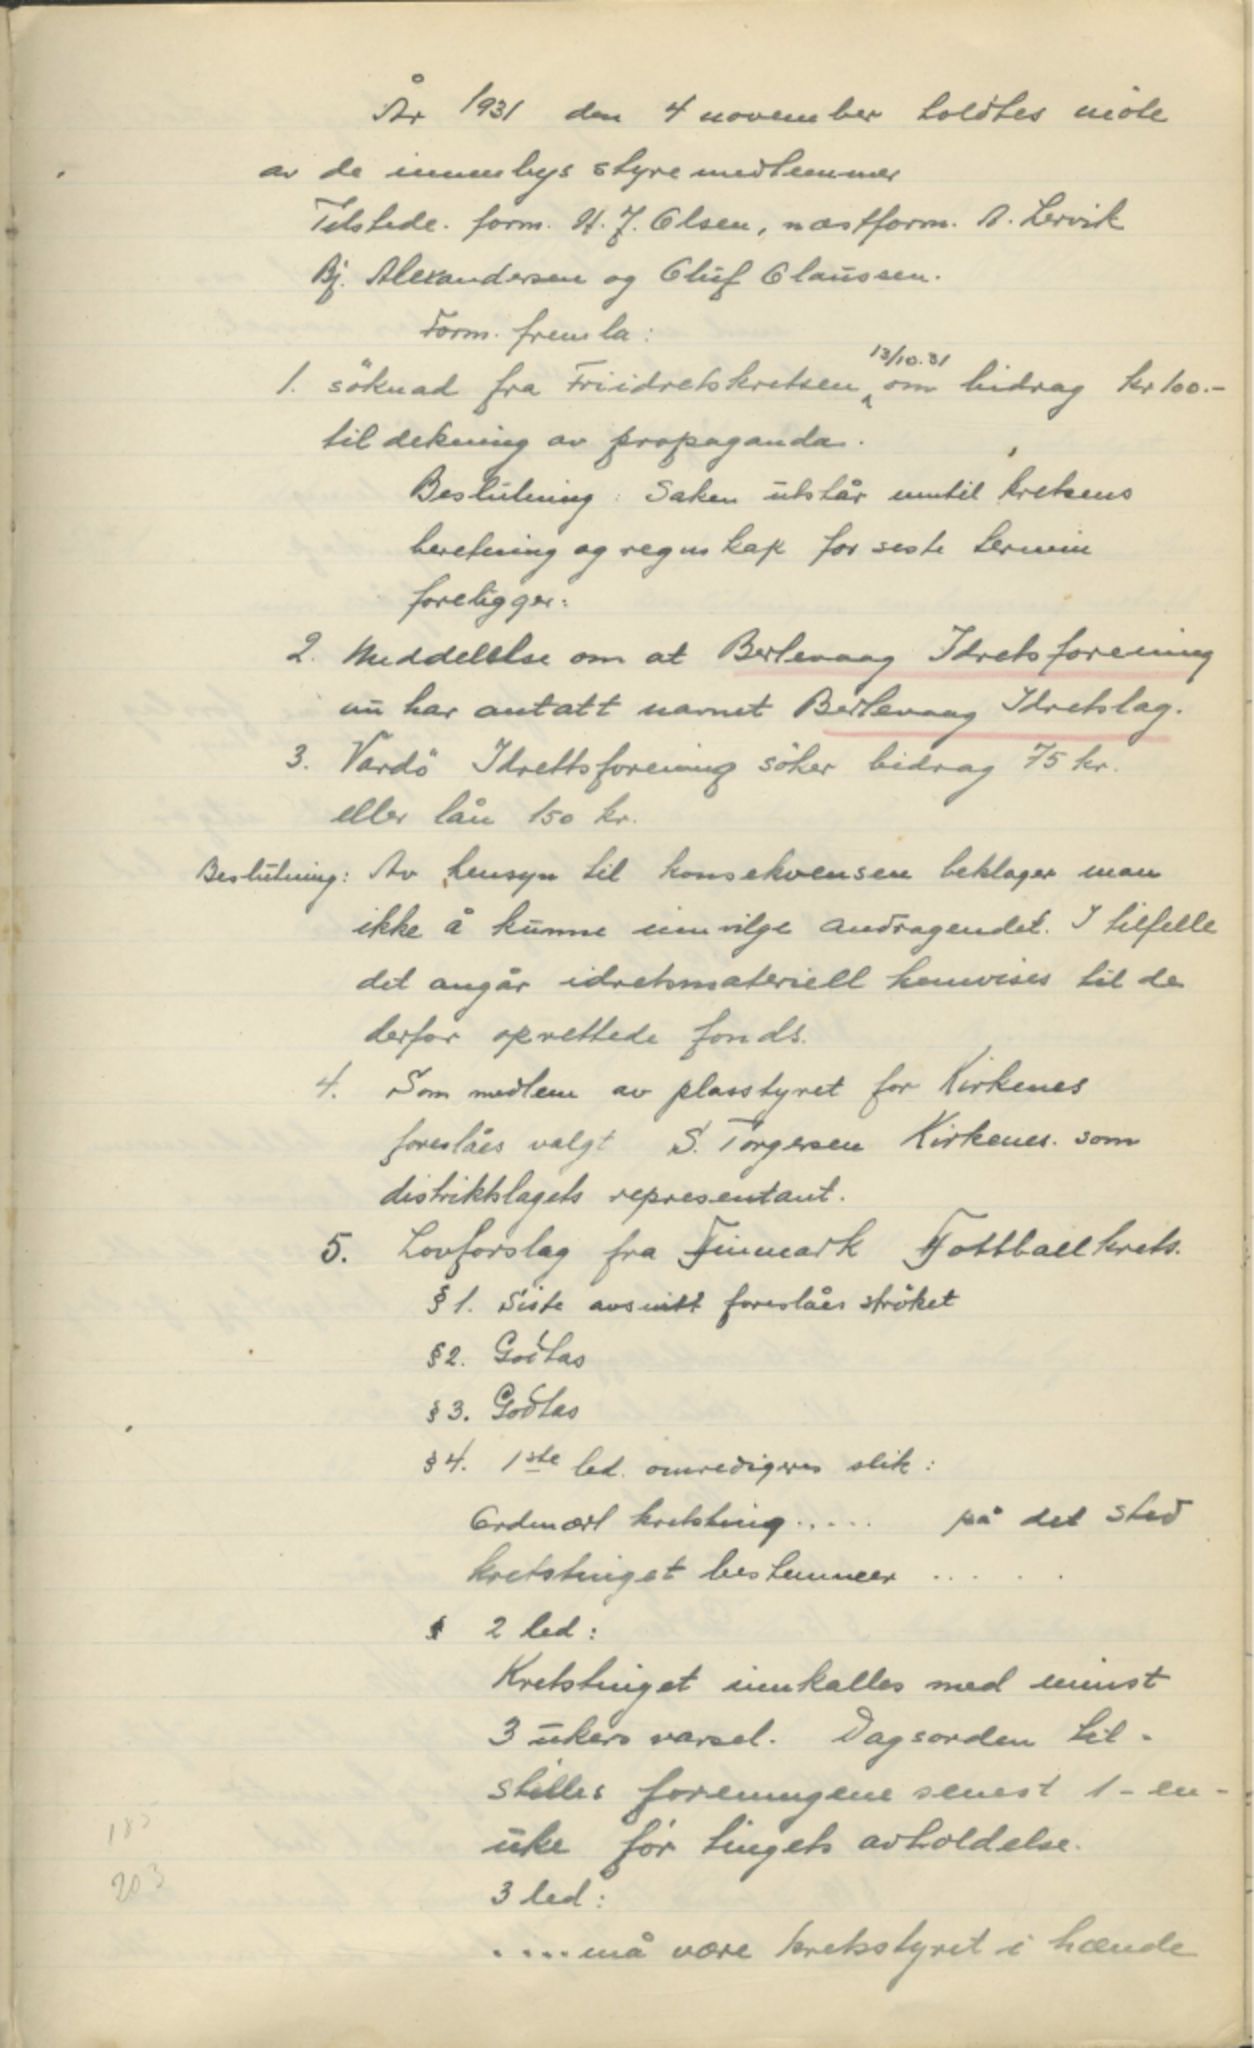 År 1931 den 4 november holdtes möte
av de innenbys styremedlemmer
Tilstede. form. H. J. Olsen, næstform. A. Lervik
Bj. Alexandersen og Oluf Claussen.
Form. fremla:
1. söknad fra Friidretskretsen 13/10.31 om bidrag kr 100.-
til dekning av propaganda.
Beslutning: Saken utstår inntil kretsens
beretning og regnskap for siste termin
foreligger:
2. Meddelelse om at Berlevaag Idretsforening
nu har antatt navnet Berlevaag Idretslag.
3. Vardö Idrettsforening söker bidrag 75 kr.
eller lån 150 kr.
Beslutning: Av hensyn til konsekvensen beklager man
ikke å kunne innvilge andragendet. I tilfelle
det angår idretsmateriell henvises til de
derfor oprettede fonds.
4. Som medlem av plasstyret for Kirkenes
foreslåes valgt S. Torgersen Kirkenes. som
distriktslagets representant.
5. Lovforslag fra Finmark Fottballkrets.
§ 1. Siste avsnitt foreslåes ströket
§ 2. Godtas
§ 3. Godtas
§ 4. 1ste led. omredigeres slik:
Ordinært kretsting..... på det sted
kretstinget bestemmer .....
§ 2 led:
Kretstinget innkalles med minst
3 ukers varsel. Dagsorden til-
stilles foreningene senest 1-en-
uke för tingets avholdelse.
3 led:
....må være kretsstyret i hænde
183
203